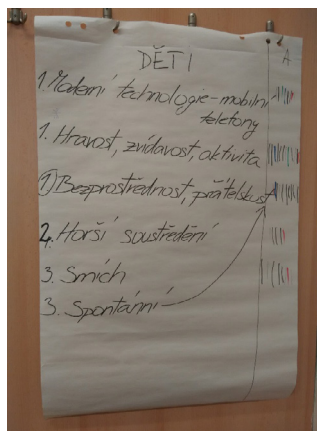 DĚTI
A
1. Moderní technologie - mobilní
telefony
1. Hravost, zvídavost, aktivita
1) Bezprostřednost, přátelskost
2. Horší soustředění
3. Smích
3. Spontánní